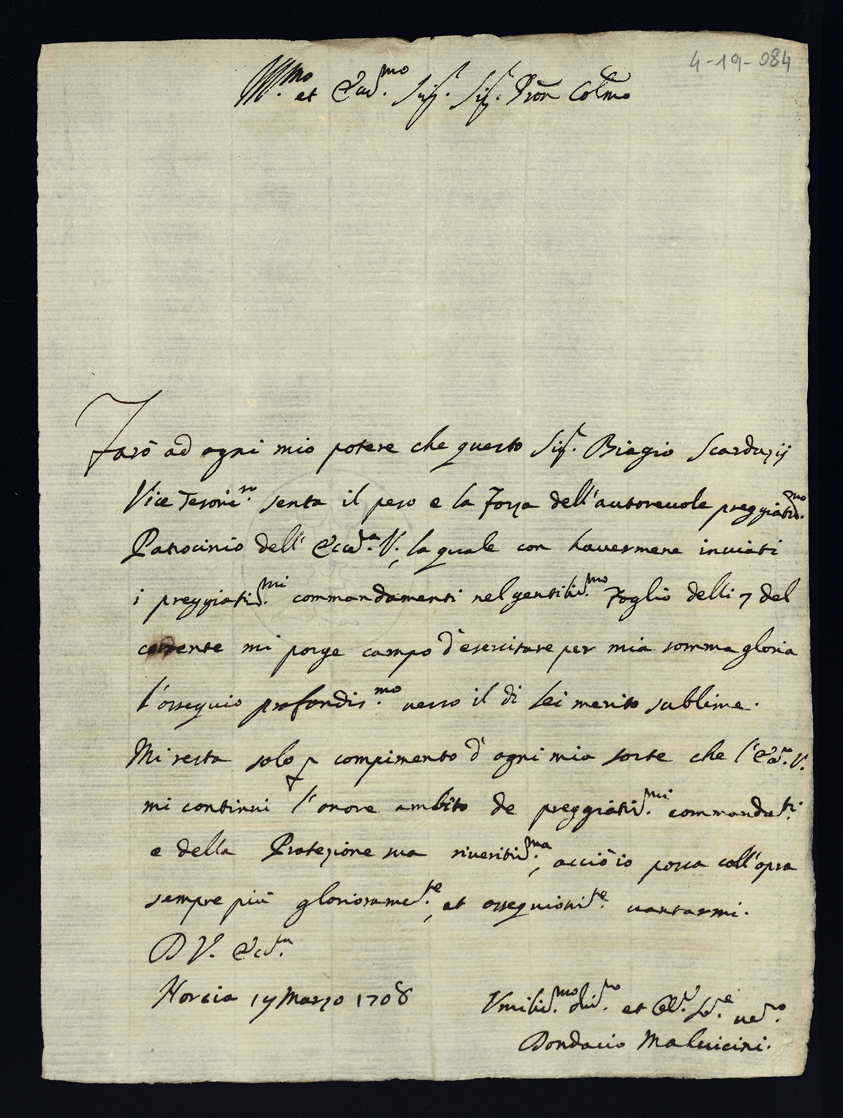 4-19-084
Ill.mo et Ecc.mo Sig. Sig. Pron Colmo
Farò ad ogni mio potere che questo Sig. Biagio Scardazij
Vice Tesorie.ro senta il peso e la forza dell'autoreuole preggiatis.mo
Patrocinio dell' Ecc.a V., la quale con hauermene inuiati
i preggiatis.mi commandamenti nel gentilis.mo Foglio delli 7 del
corrente mi porge campo d'esercitare per mia somma gloria
l'ossequio profondis.mo uerso il di Lei merito sublime.
Mi resta solo p compimento d'ogni mia sorte che l'Ecc.a V.
mi continui l'onore ambito de preggiatis.mi commanda.ti
e della Protezione sua riueritis.ma, acciò io possa coll'opra
sempre più gloriosame.te, et ossequiosis.te uantarmi.
D V. Ecc.a
Norcia 17 Marzo 1708
Vmilis.mo diu.mo et Obl. Se.re ue.ro
Bondacio Maluicini.